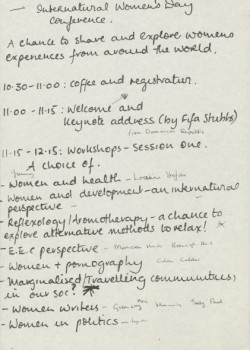 — International Women's Day
Conference.
A chance to share and explore womens
experiences from around the world.
10·30-11·00 : coffee and registration.
11·00 - 11·15 : Welcome and
Keynote address (by Fifa Stubbs)
from Dominican Republic
11·15 - 12·15 : Workshops - Session one.
A choice of.
- Women and health -
- Women and development - an international
perspective -
- Reflexology/Aromatherapy - a chance to
explore alternative methods to relax!
- E.E.C perspective -
- Women + pornography
- Marginalised/Travelling communities
in our soc?
- Women Writers -
- Women in politics -